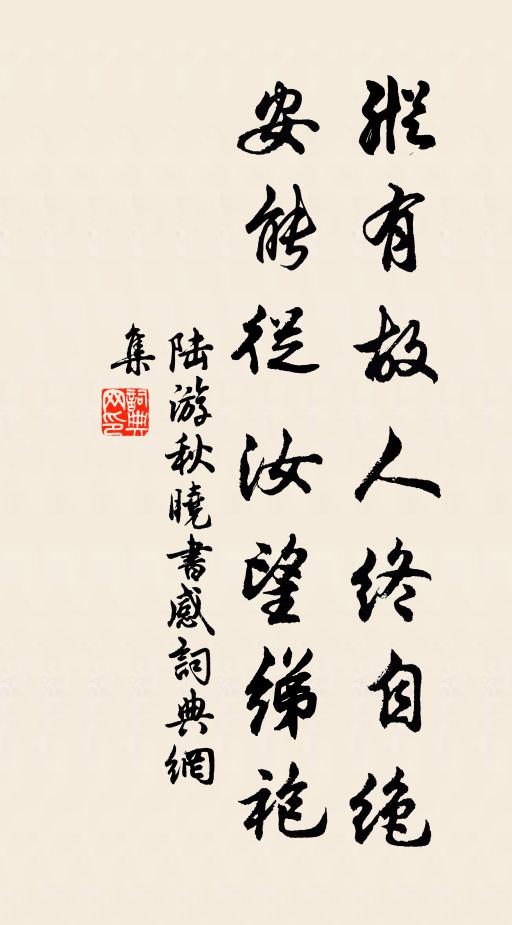 縱有故人終自絶
安能從汝望綈袍
陆游秋曉書感詞典網
集
詞典
网印